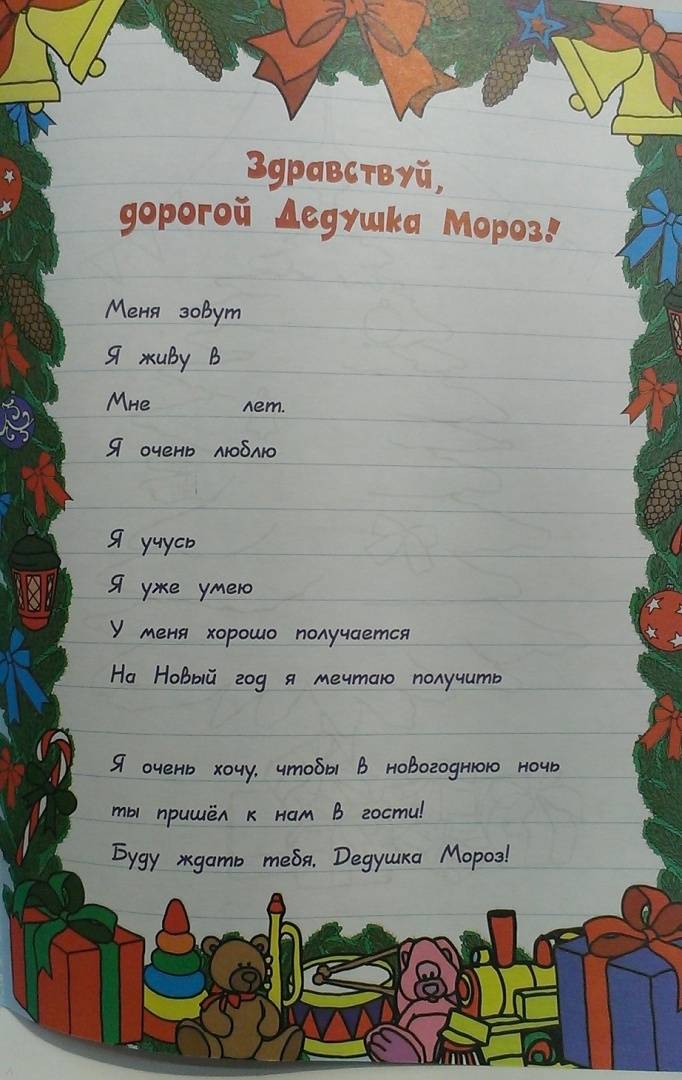 Здравствуй,
дорогой Дедушка Мороз!
Меня зовут
Я живу в
Мне лет.
Я очень люблю
Я учусь
Я уже умею
У меня хорошо получается
На Новый год я мечтаю получить
Я очень хочу, чтобы в новогоднюю ночь
ты пришёл к нам в гости!
Буду ждать тебя, Дедушка Мороз!